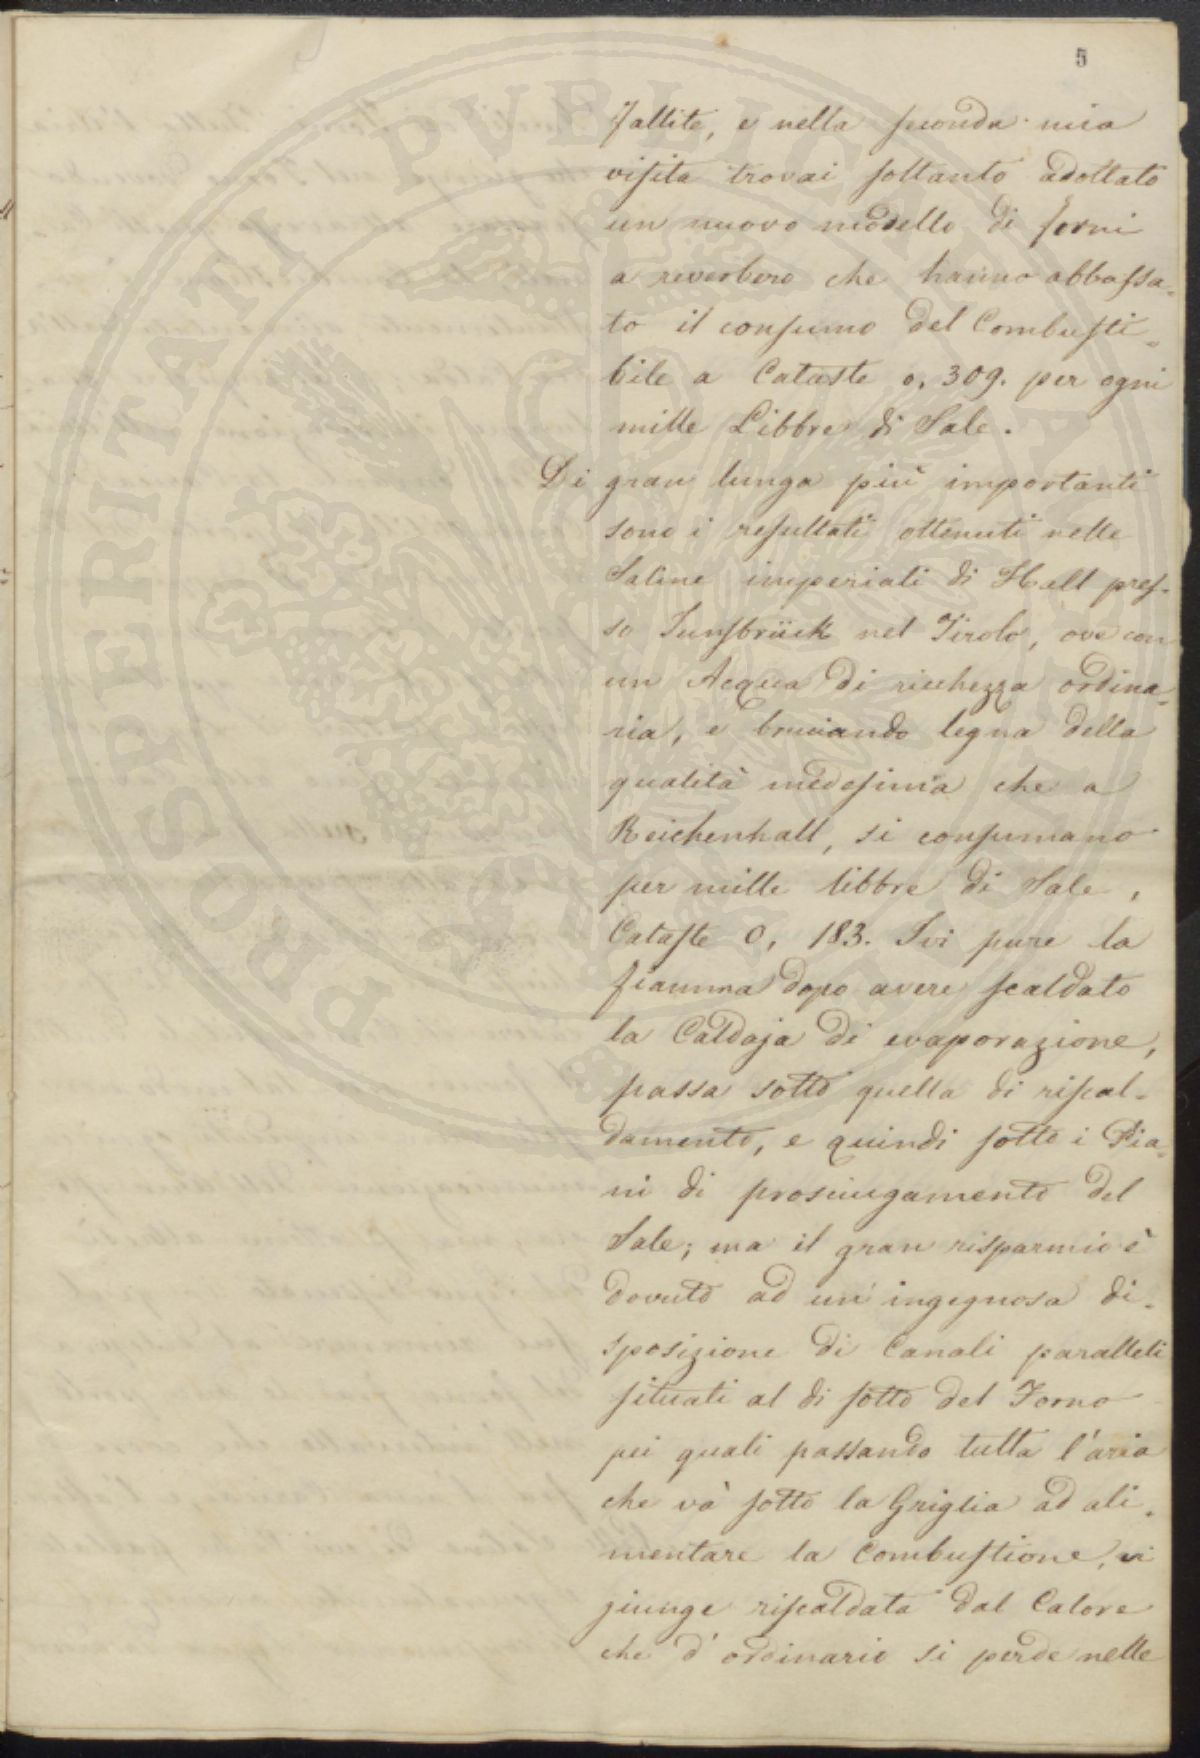 5
fallite, e nella seconda mia
visita trovai soltanto adottato
un nuovo modello di forni
a reverbero che hanno abbassa=
to il consumo del Combusti=
bile a Cataste 0, 309. per ogni
mille Libbre di Sale.
Di gran lunga più importanti
sono i resultati ottenuti nelle
Saline imperiali di Hall pres-
so Iunsbrück nel Tirolo, ove con
un Acqua di ricchezza ordina=
ria, e bruciando legna della
qualità medesima che a
Reichenhall, si consumano
per mille libbre di Sale,
Cataste 0, 183. Ivi pure la
fiamma dopo avere scaldato
la Caldaja di evaporazione,
passa sotto quella di riscal-
damento, e quindi sotto i Pia=
ni di prosciugamento del
Sale; ma il gran risparmio è
dovuto ad un'ingegnosa di=
sposizione di Canali paralleli
situati al di sotto del Forno
pei quali passando tutta l'aria
che và sotto la Griglia ad ali=
mentare la Combustione, vi
giunge riscaldata dal Calore
che d'ordinario si perde nelle
PROSPERITATI PVBLICAE